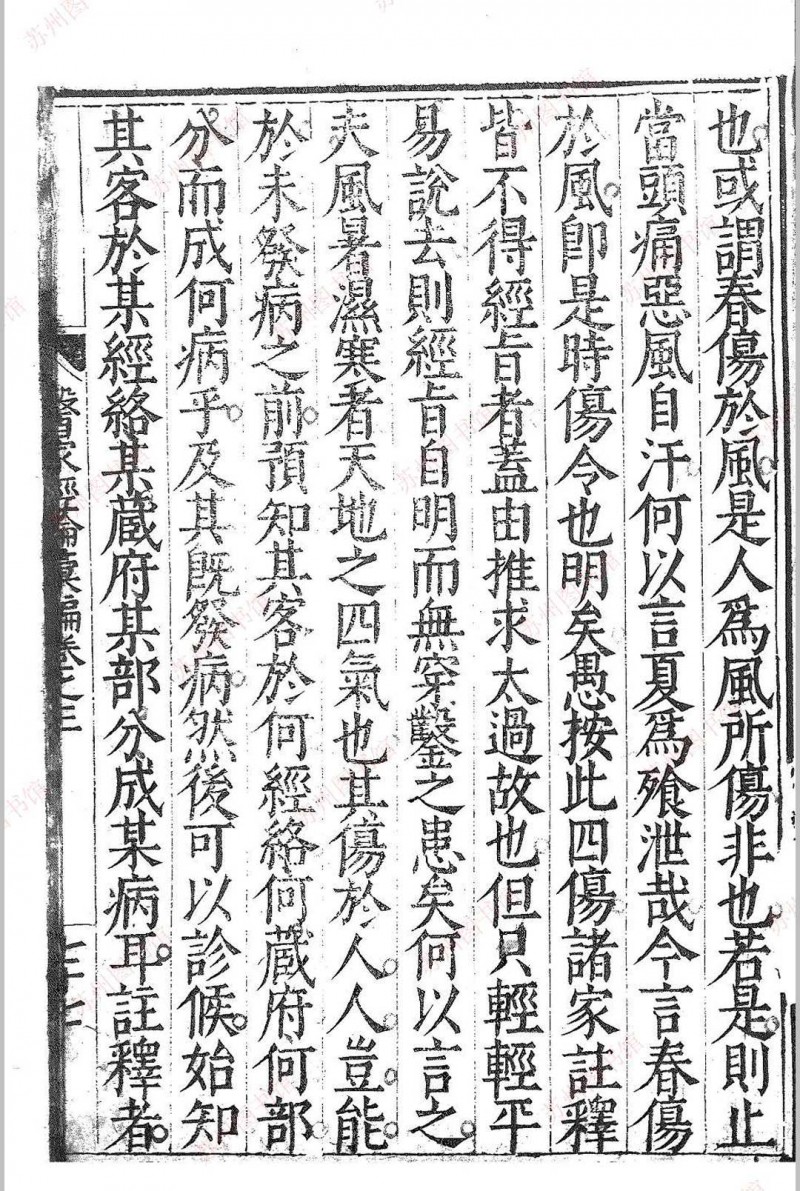 也或謂春傷於風是人爲風所傷非也若是則止
當頭痛惡風自汗何以言夏爲飧泄哉今言春傷
於風卽是時傷令也明矣愚按此四傷諸家註釋
皆不得經旨者蓋由推求太過故也但只輕輕平
易說去則經旨自明而無穿鑿之患矣何以言之
夫風暑濕寒者天地之四氣也其傷於人人豈能
於未發病之前預知其客於何經絡何藏府何部
分而成何病乎及其旣發病然後可以診候始知
其客於某經絡某藏府某部分成某病耳註釋者
醫家經論彙編卷之三
七十七
苏州图书馆